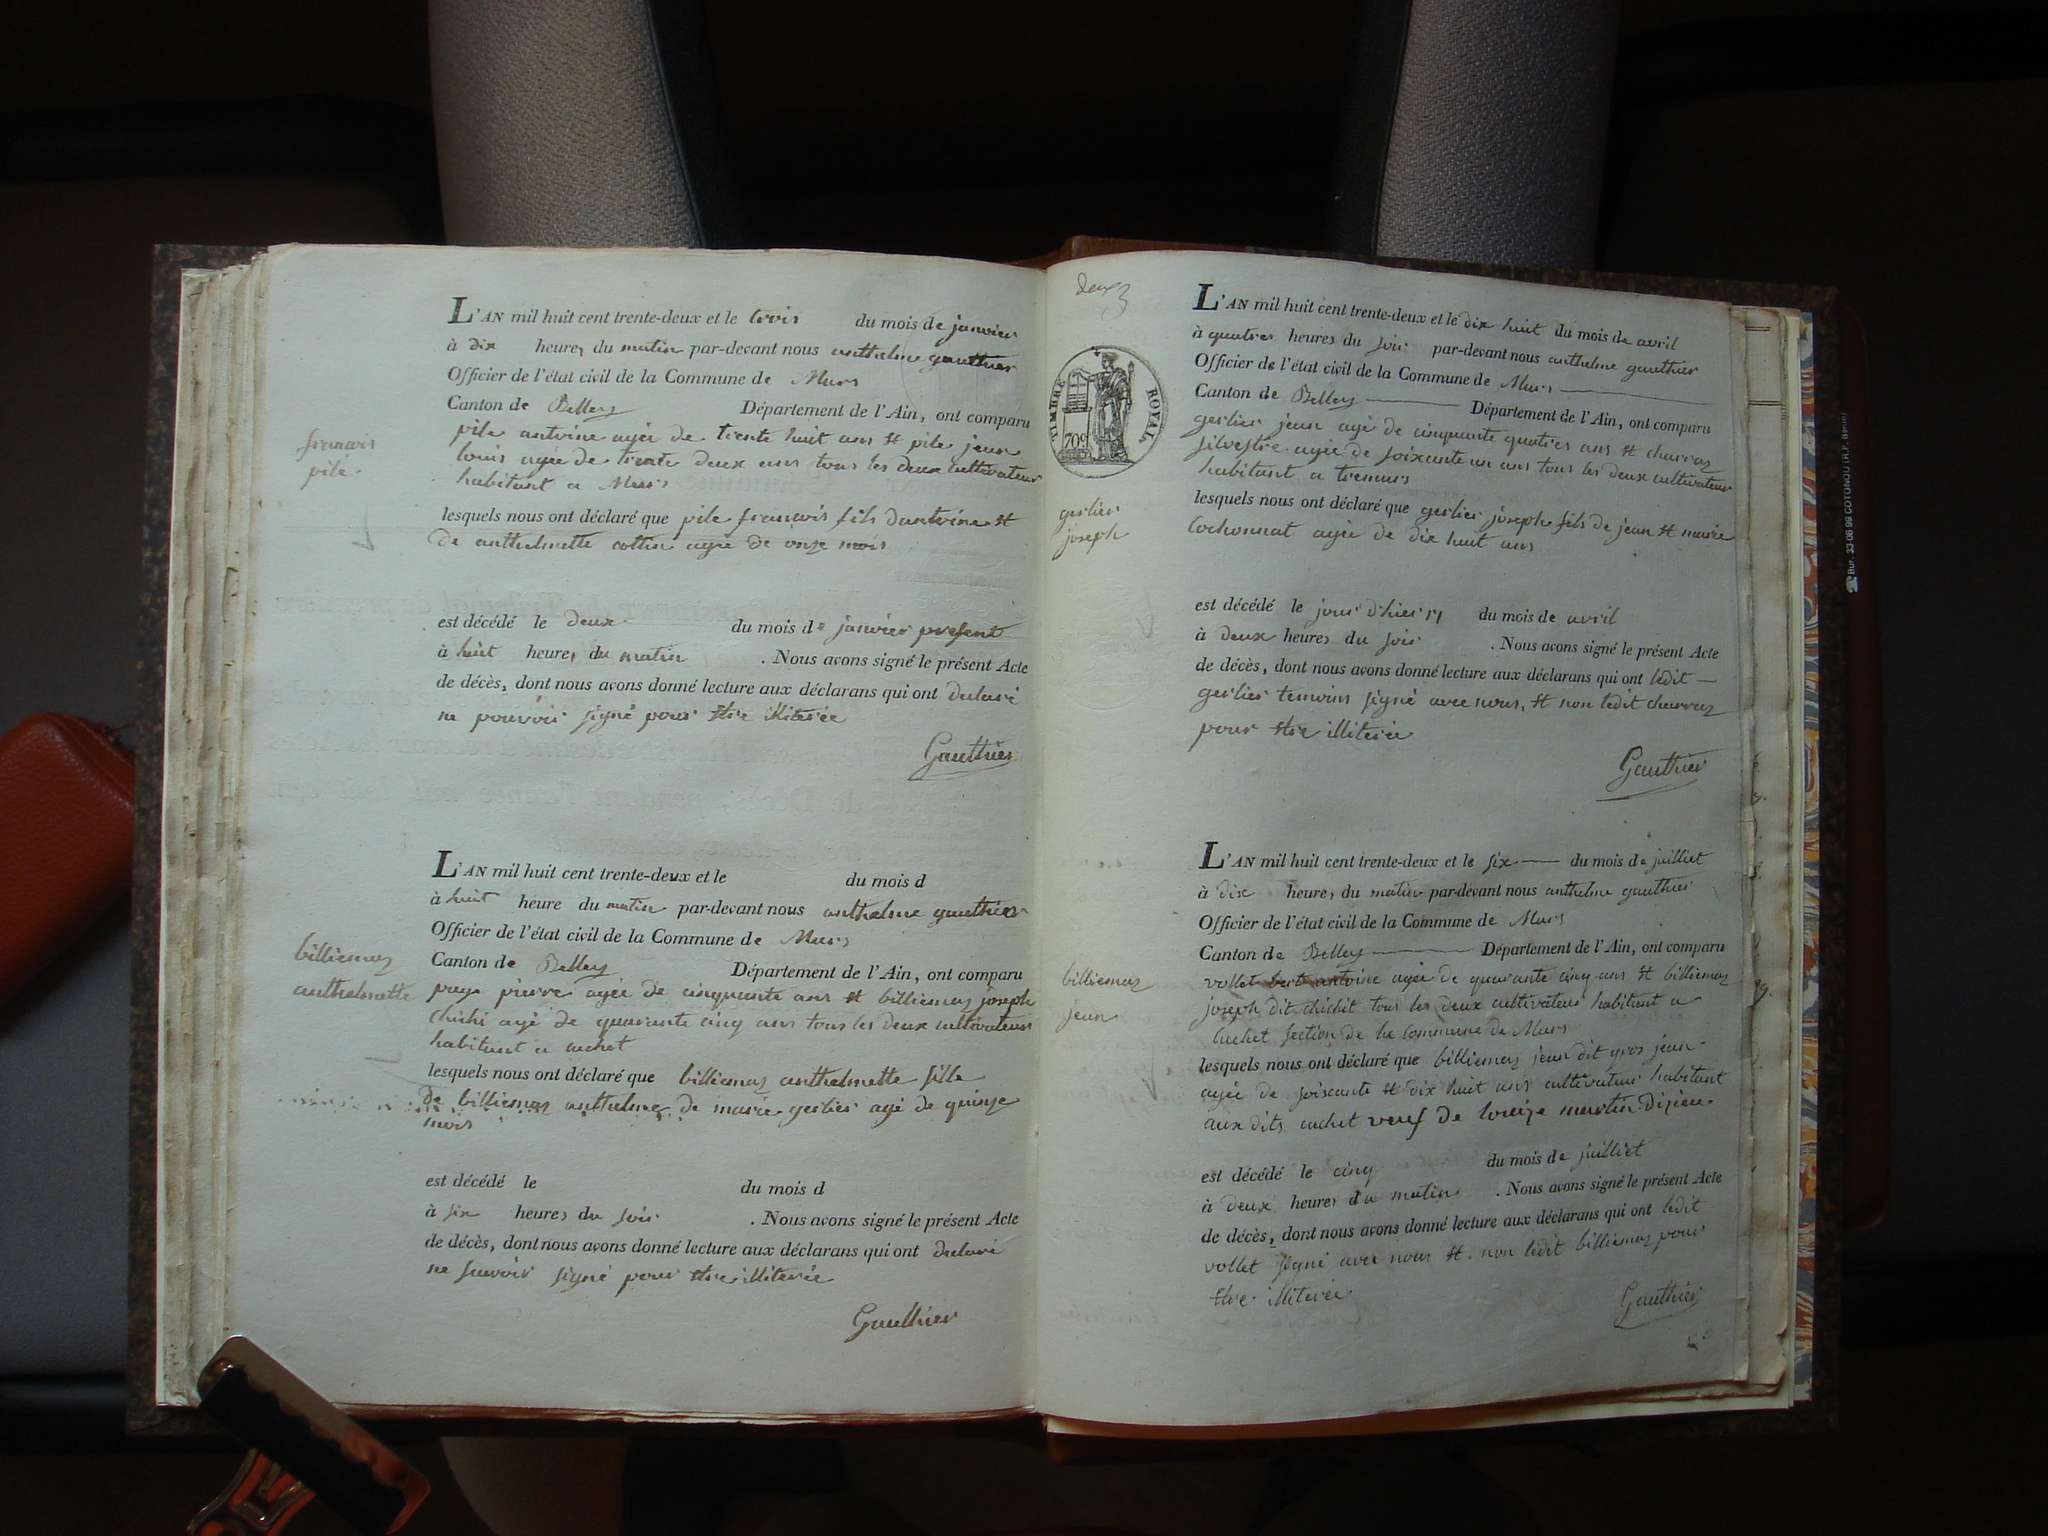 françois
pile
L'AN mil huit cent trente-deux et le trois du mois de janvier
à dix heures du matin par-devant nous anthelme gauthier
Officier de l'état civil de la Commune de Murs
Canton de Belley Département de l'Ain, ont comparu
pile antoine agée de trente huit ans et pile jean
louis agée de trente deux ans tous les deux cultivateur
habitant a Murs
lesquels nous ont déclaré que pile françois fils dantoine et
de anthelmette cottin agée de onze mois
est décédé le deux du mois de janvier present
à huit heures du matin . Nous avons signé le présent Acte
de décès, dont nous avons donné lecture aux déclarans qui ont declaré
ne pouvoir signé pour etre illiterée
Gauthier
billiemaz
anthelmette
L'AN mil huit cent trente-deux et le du mois d
à huit heure du matin par-devant nous anthelme gauthier
Officier de l'état civil de la Commune de Murs
Canton de Belley Département de l'Ain, ont comparu
pierre agée de cinquante ans et billiemaz joseph
chichi agé de quarante cinq ans tous les deux cultivateur
habitant a cuchet
lesquels nous ont déclaré que billiemaz anthelmette fille
de billiemaz anthelme de marie gerlier agé de quinze
mois
est décédé le du mois d
à six heures du soir . Nous avons signé le présent Acte
de décès, dont nous avons donné lecture aux déclarans qui ont declaré
ne savoir signé pour etre illiterée
Gauthier
deux
TIMBRE ROYAL
70c
gerlier
joseph
L'AN mil huit cent trente-deux et le dix huit du mois de avril
à quatres heures du soir par-devant nous anthelme gauthier
Officier de l'état civil de la Commune de Murs
Canton de Belley Département de l'Ain, ont comparu
gerlier jean agé de cinquante quatres ans et charvaz
silvestre agée de soixante un ans tous les deux cultivateur
habitant a tremurs
lesquels nous ont déclaré que gerlier joseph fils de jean et marie
Cochonnat agée de dix huit ans
est décédé le jour d'hier 17 du mois de avril
à deux heures du soir . Nous avons signé le présent Acte
de décès, dont nous avons donné lecture aux déclarans qui ont ledit
gerlier temoins signé avec nous, et non ledit charvaz
pour etre illiterée
Gauthier
billiemaz
jean
L'AN mil huit cent trente-deux et le six du mois de juilliet
à dix heures du matin par-devant nous anthelme gauthier
Officier de l'état civil de la Commune de Murs
Canton de Belley Département de l'Ain, ont comparu
vollet antoine agée de quarante cinq ans et billiemaz
joseph dit chichit tous les deux cultivateur habitant a
cuchet section de la Commune de Murs
lesquels nous ont déclaré que billiemaz jean dit gros jean
agée de soixante et dix huit ans cultivateur habitant
aux dits cuchet veuf de louize martin
est décédé le cinq du mois de juilliet
à deux heures du matin . Nous avons signé le présent Acte
de décès, dont nous avons donné lecture aux déclarans qui ont ledit
vollet signé avec nous et non ledit billiemaz pour
etre illiterée
Gauthier